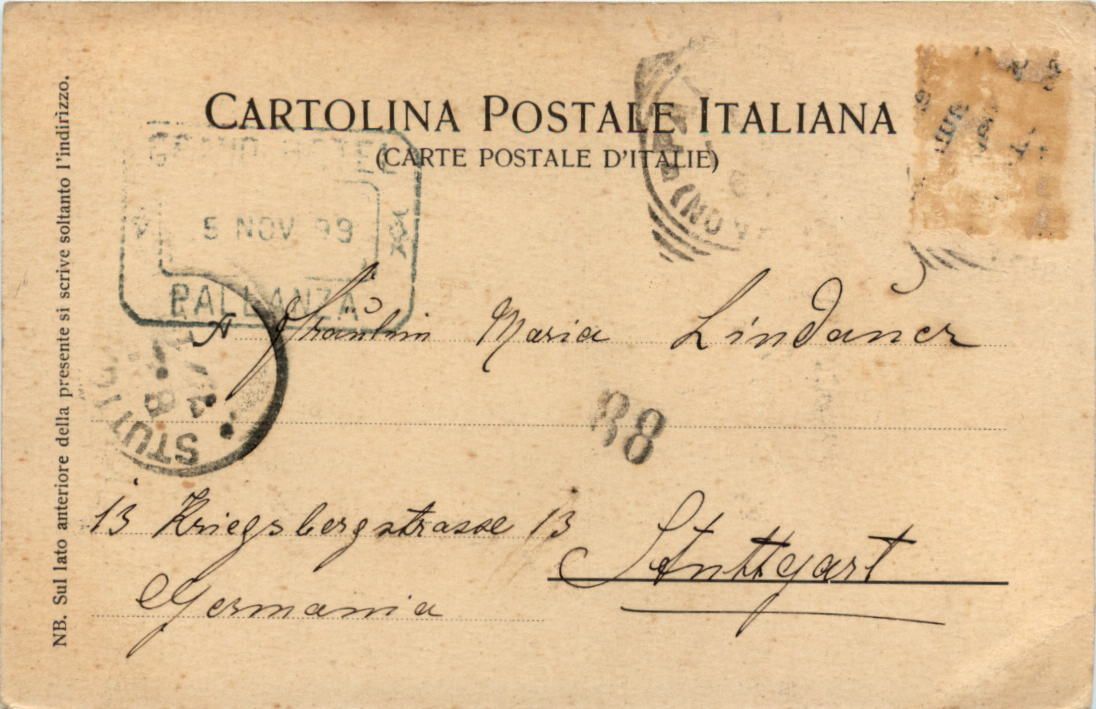 CARTOLINA POSTALE ITALIANA
(CARTE POSTALE D'ITALIE)
GRAND HOTEL
5 NOV 99
PALLANZA
A Fräulein Maria Lindauer
STUTTG
88
13 Kriegsbergstrasse 13
Stuttgart
Germania
NB. Sul lato anteriore della presente si scrive soltanto l'indirizzo.